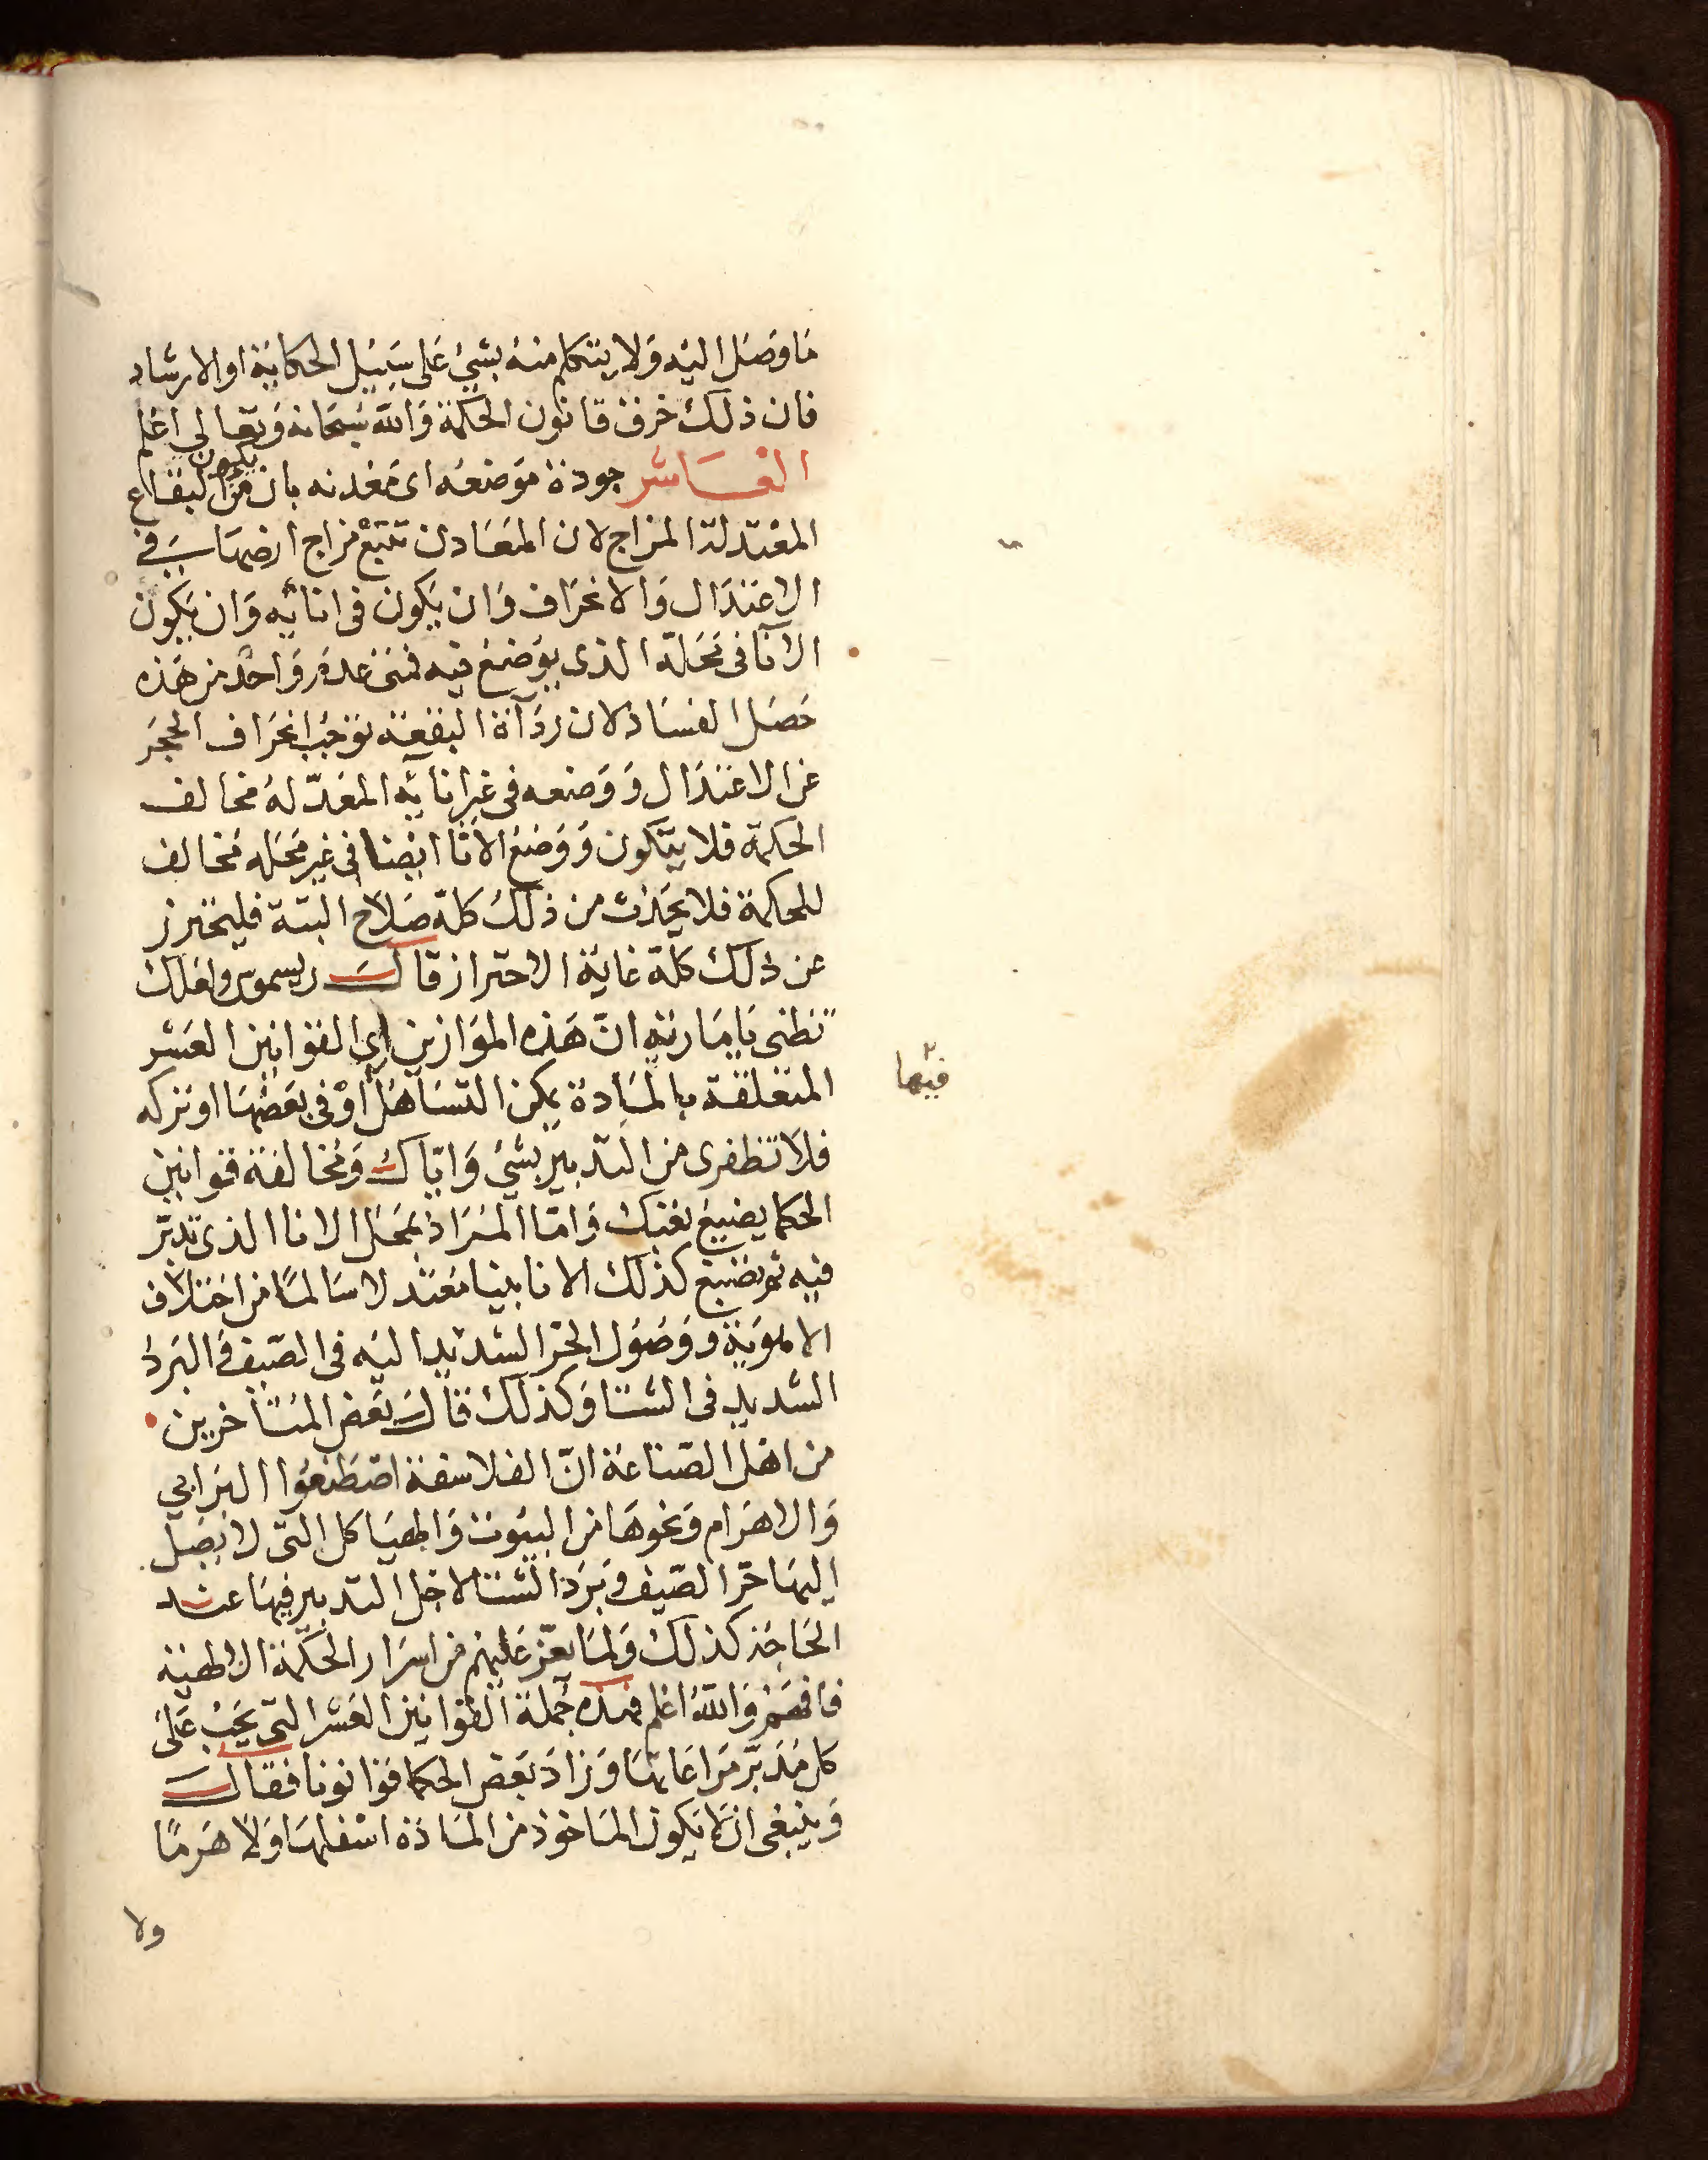 ما وصل اليه ولا يتكلم منه بشئ على سبيل الحكاية او الارشاد
فان ذلك خرق قانون الحكمة والله سبحانه وتعالى اعلم
العاشر جودة موضعه اى معدنه بان يكون من البقاع
المعتدلة المزاج لان المعادن تتبع مزاج ارضها في
الاعتدال والانحراف وان يكون فى انائه وان يكون
الانآ فى محله الذى يوضع فيه فمتى عدم واحد من هذه
حصل الفساد لان ردآة البقعة توجب انحراف الحجر
عن الاعتدال ووضعه فى غير انائه المعدّ له مخالف
الحكمة فلا يتكون ووضع الانا ايضا فى غير محله مخالف
للحكمة فلا يحدث من ذلك كله صلاح البتة فليحترز
عن ذلك كله غاية الاحتراز قال ريسموس ولعلك
تظنى يا مارية انّ هذه الموازين اى القوانين العشر
المتعلقة بالمادة يمكن التساهل او فى بعضها او تركه
فيها
فلا تظفرى من التدبير بشئ وايّاك ومخالفة قوانين
الحكما يضيع تعبك وامّا المراد بمحل الانا الذى تدبر
فيه ثم يضيع كذلك الانا بيتا معتدلا سالمًا من اختلاف
الاهوية ووصول الحرّ الشديد اليه فى الصيف والبرد
الشديد فى الشتا وكذلك قال بعض المتأخرين
من اهل الصناعة انّ الفلاسفة اصطنعوا البرابي
والاهرام ونحوها من البيوت والهياكل التى لا يصل
اليها حرّ الصيف وبرد الشتا لاجل التدبير فيها عند
الحاجة كذلك ولما يعزّ عليهم من اسرار الحكمة الالهية
فافهم والله اعلم فهذه جملة القوانين العشر التى يجب على
كل مدبّر مراعاتها وزاد بعض الحكما قوانونا فقال
وينبغى ان لا يكون الماخوذ من المادة اسفلها ولا هرمًا
ولا